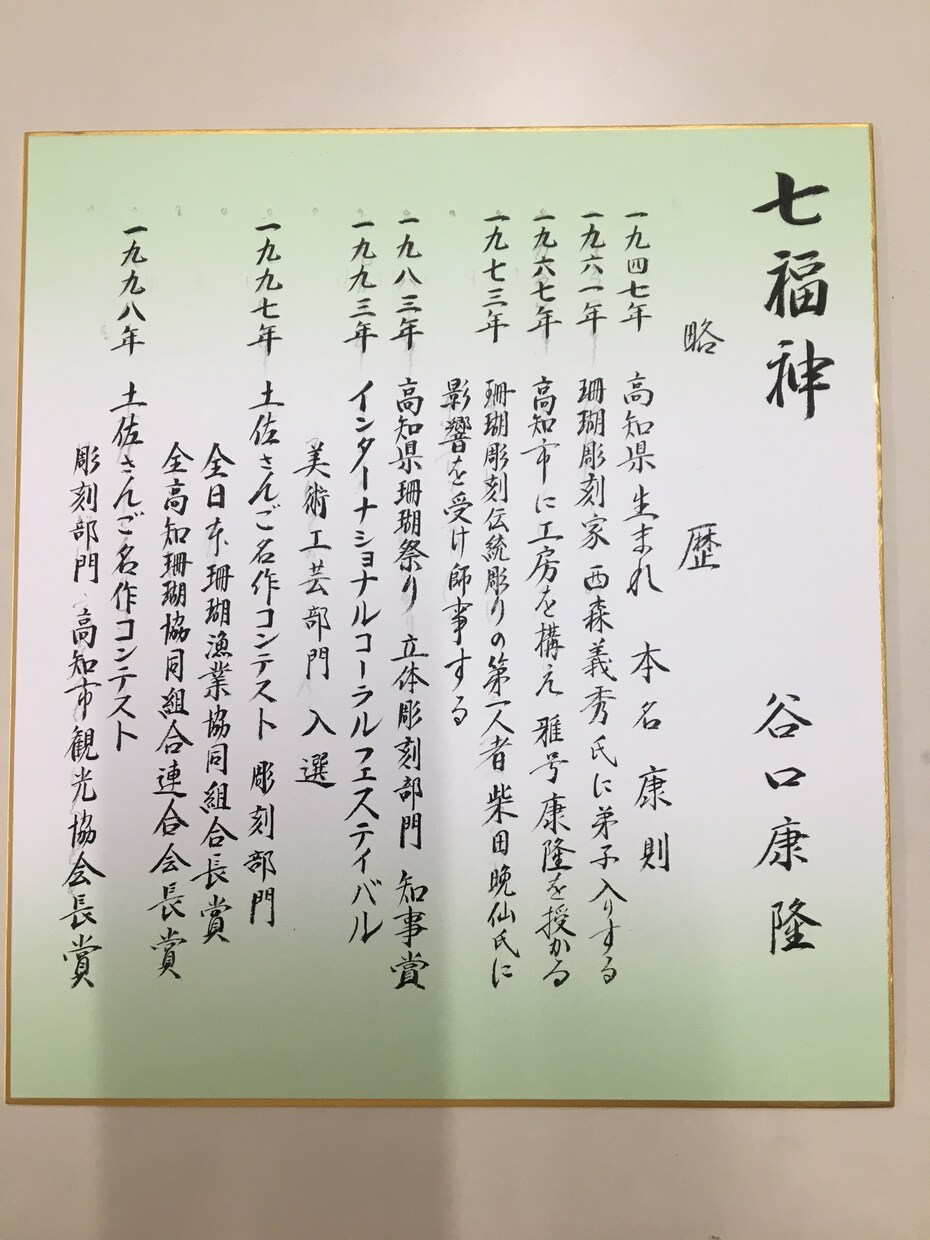 七福神 谷口康隆
略歴
一九四七年 高知県生まれ 本名 康則
一九六一年 珊瑚彫刻家 西森義秀氏に弟子入りする
一九六七年 高知市に工房を構え 雅号康隆を授かる
一九七三年 珊瑚彫刻伝統彫りの第一人者 柴田晩仙氏に
影響を受け師事する
一九八三年 高知県珊瑚祭り 立体彫刻部門 知事賞
一九九三年 インターナショナルコーラルフェスティバル
美術工芸部門 入選
一九九七年 土佐さんご名作コンテスト 彫刻部門
全日本珊瑚漁業協同組合長賞
全高知珊瑚協同組合連合会長賞
一九九八年 土佐さんご名作コンテスト
彫刻部門 高知市観光協会長賞